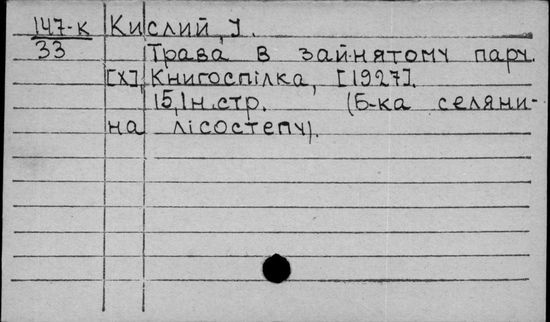 147-к Кислий, І.
33 Трава в зайнятому пару.
[Х], Книгоспілка, [1927].
15,1н.стр. (Б-ка селяни-
на лісостепу).